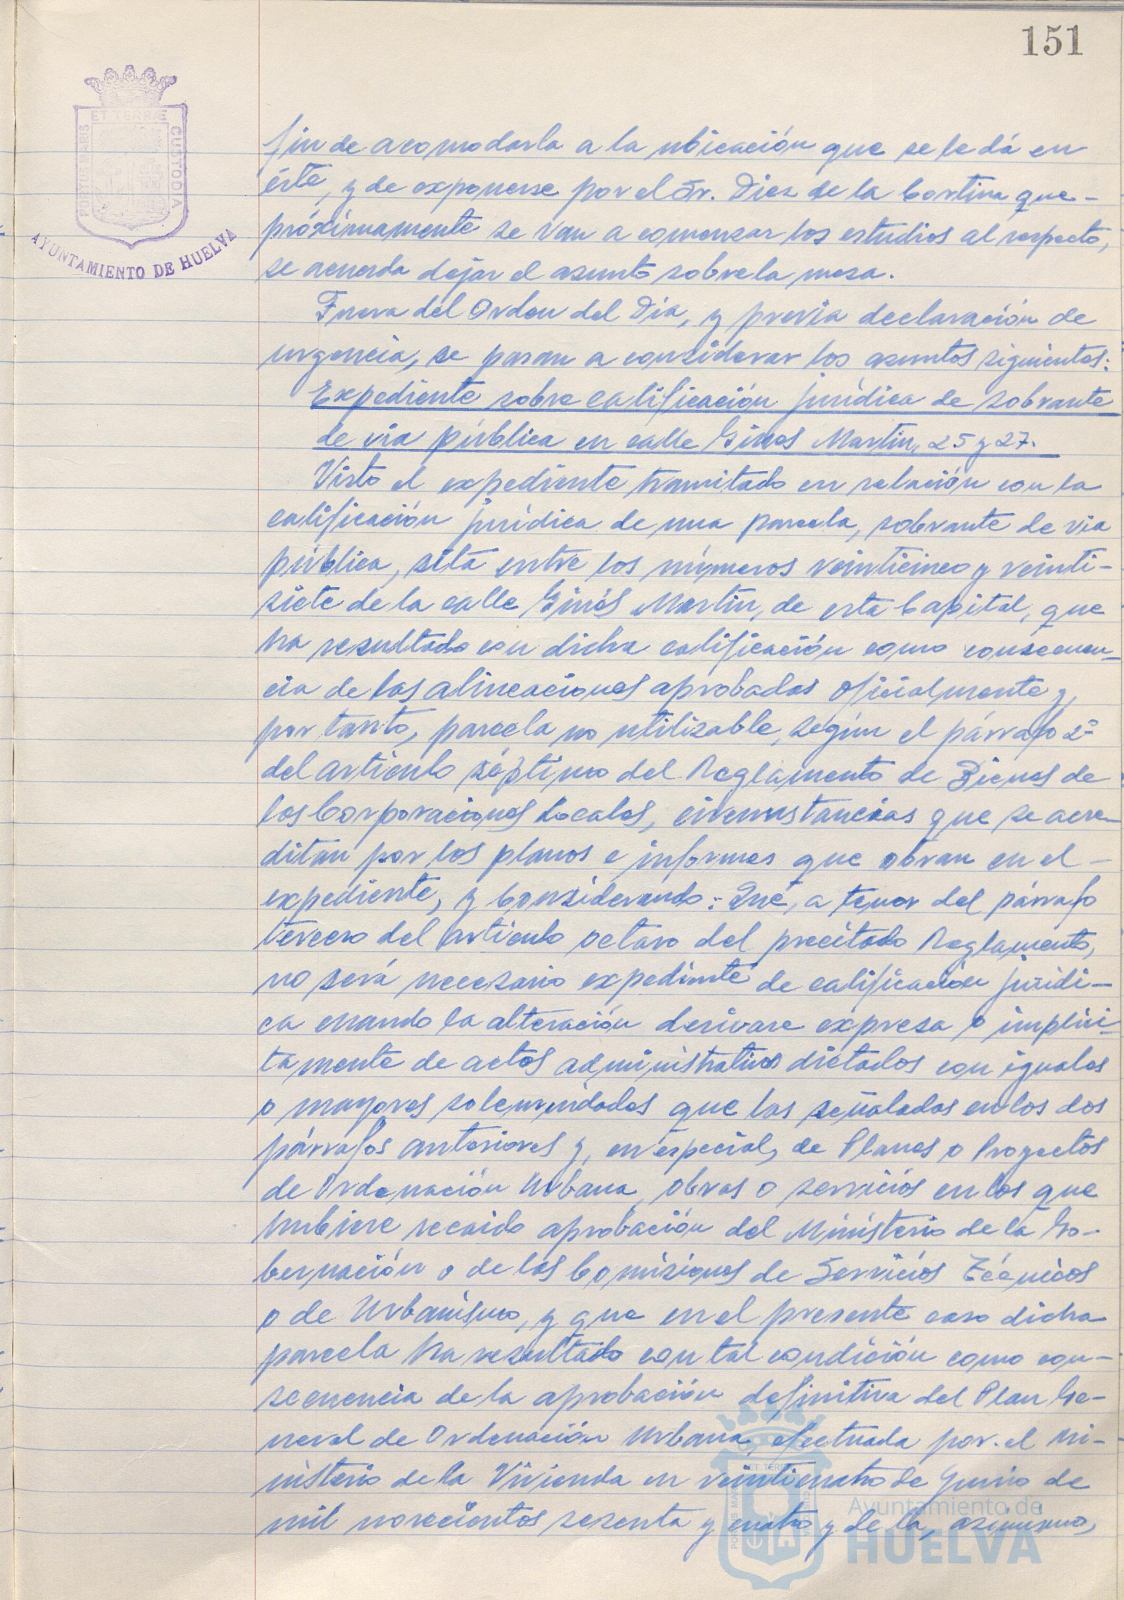 151
PORTUS MARIS ET TERRÆ CUSTODIA
AYUNTAMIENTO DE HUELVA
fin de acomodarla a la ubicación que se le dá en
éste, y de exponerse por el Sr. Diez de la Cortina que-
próximamente se van a comenzar los estudios al respecto,
se acuerda dejar el asunto sobre la mesa.
Fuera del Orden del Día, y previa declaración de
urgencia, se pasan a considerar los asuntos siguientes:
Expediente sobre calificación jurídica de sobrante
de via pública en calle Ginés Martin, 25 y 27.
Visto el expediente tramitado en relación con la
calificación jurídica de una parcela, sobrante de via
pública, sita entre los números veinticinco y veinti-
siete de la calle Ginés Martin, de esta Capital, que
ha resultado con dicha calificación como consecuen-
cia de las alineaciones aprobadas oficialmente y,
por tanto, parcela no utilizable, según el párrafo 2º
del artículo séptimo del Reglamento de Bienes de
las Corporaciones Locales, circunstancias que se acre-
ditan por los planos e informes que obran en el-
expediente, y Considerando: Que, a tenor del párrafo
tercero del artículo octavo del precitado Reglamento,
no será necesario expediente de calificación jurídi-
ca cuando la alteración derivare expresa o implíci-
tamente de actos administrativos dictados con iguales
o mayores solemnidades que las señaladas en los dos
párrafos anteriores y, en especial, de Planes o Proyectos
de Ordenación Urbana, obras o servicios en los que
hubiere recaido aprobación del Ministerio de la Go-
bernación o de las Comisiones de Servicios Técnicos
o de Urbanismo, y que en el presente caso dicha
parcela ha resultado con tal condición como con-
secuencia de la aprobación definitiva del Plan Ge-
neral de Ordenación Urbana, efectuada por el Mi-
nisterio de la Vivienda en veinticuatro de Junio de
mil novecientos sesenta y cuatro y de la, asimismo,
Ayuntamiento de
HUELVA